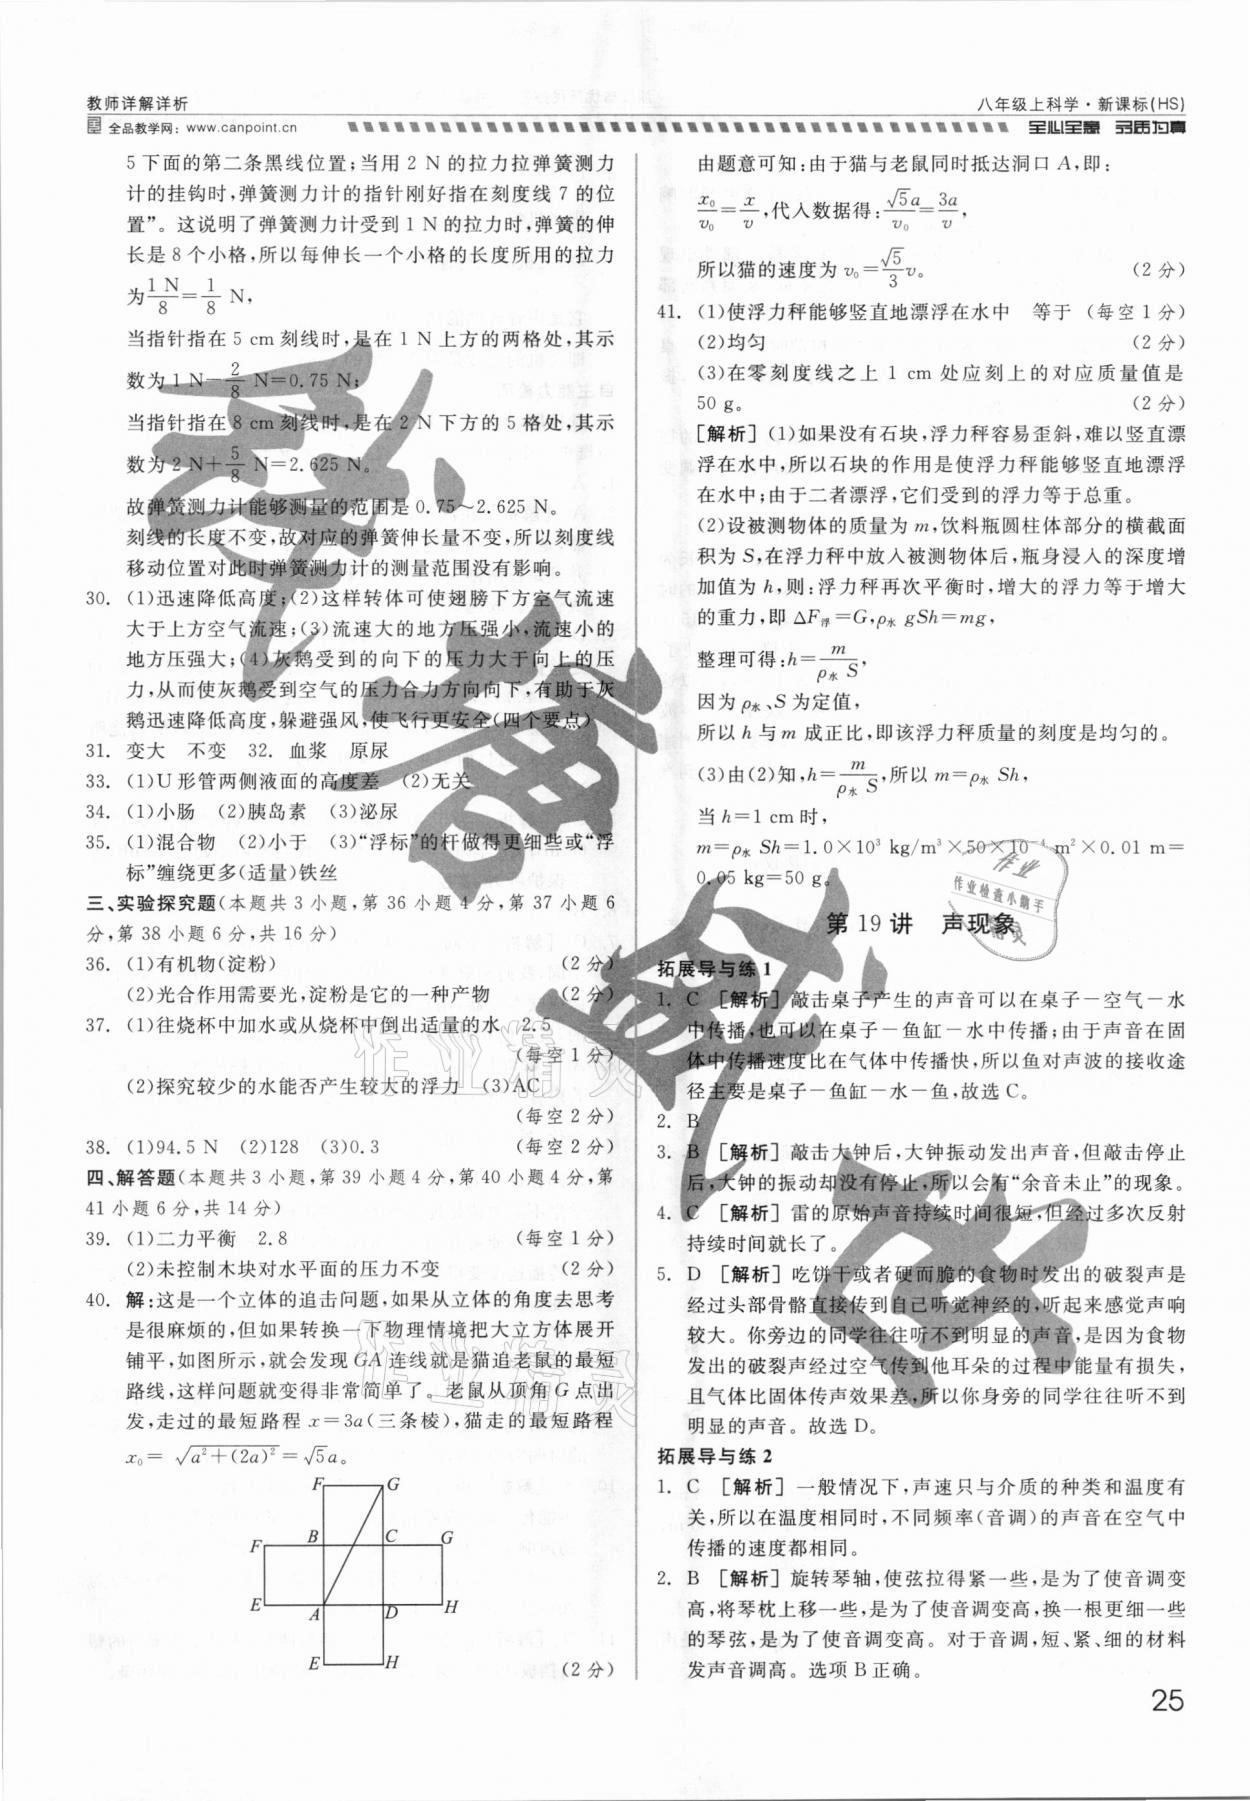 教师详解详析
全品教学网：www.canpoint.cn
八年级上科学·新课标(HS)
全心全意 品质为真
5下面的第二条黑线位置；当用2 N的拉力拉弹簧测力
计的挂钩时，弹簧测力计的指针刚好指在刻度线7的位
置”。这说明了弹簧测力计受到1 N的拉力时，弹簧的伸
长是8个小格，所以每伸长一个小格的长度所用的拉力
为1 N/8=1/8 N，
当指针指在5 cm刻线时，是在1 N上方的两格处，其示
数为1 N−2/8 N=0.75 N；
当指针指在8 cm刻线时，是在2 N下方的5格处，其示
数为2 N+5/8 N=2.625 N。
故弹簧测力计能够测量的范围是0.75～2.625 N。
刻线的长度不变，故对应的弹簧伸长量不变，所以刻度线
移动位置对此时弹簧测力计的测量范围没有影响。
30. (1)迅速降低高度；(2)这样转体可使翅膀下方空气流速
大于上方空气流速；(3)流速大的地方压强小，流速小的
地方压强大；(4)灰鹅受到的向下的压力大于向上的压
力，从而使灰鹅受到空气的压力合力方向向下，有助于灰
鹅迅速降低高度，躲避强风，使飞行更安全(四个要点)
31. 变大 不变 32. 血浆 原尿
33. (1)U形管两侧液面的高度差 (2)无关
34. (1)小肠 (2)胰岛素 (3)泌尿
35. (1)混合物 (2)小于 (3)“浮标”的杆做得更细些或“浮
标”缠绕更多(适量)铁丝
三、实验探究题(本题共3小题，第36小题4分，第37小题6
分，第38小题6分，共16分)
36. (1)有机物(淀粉) (2分)
(2)光合作用需要光，淀粉是它的一种产物 (2分)
37. (1)往烧杯中加水或从烧杯中倒出适量的水 2.5
(每空1分)
(2)探究较少的水能否产生较大的浮力 (3)AC
(每空2分)
38. (1)94.5 N (2)128 (3)0.3 (每空2分)
四、解答题(本题共3小题，第39小题4分，第40小题4分，第
41小题6分，共14分)
39. (1)二力平衡 2.8 (每空1分)
(2)未控制木块对水平面的压力不变 (2分)
40. 解：这是一个立体的追击问题，如果从立体的角度去思考
是很麻烦的，但如果转换一下物理情境把大立方体展开
铺平，如图所示，就会发现GA连线就是猫追老鼠的最短
路线，这样问题就变得非常简单了。老鼠从顶角G点出
发，走过的最短路程x=3a(三条棱)，猫走的最短路程
x₀=√(a²+(2a)²)=√5a。
F G
F B C G
E A D H
E H
(2分)
由题意可知：由于猫与老鼠同时抵达洞口A，即：
x₀/v₀=x/v，代入数据得：√5a/v₀=3a/v，
所以猫的速度为v₀=√5/3v。 (2分)
41. (1)使浮力秤能够竖直地漂浮在水中 等于 (每空1分)
(2)均匀 (2分)
(3)在零刻度线之上1 cm处应刻上的对应质量值是
50 g。 (2分)
[解析] (1)如果没有石块，浮力秤容易歪斜，难以竖直漂
浮在水中，所以石块的作用是使浮力秤能够竖直地漂浮
在水中；由于二者漂浮，它们受到的浮力等于总重。
(2)设被测物体的质量为m，饮料瓶圆柱体部分的横截面
积为S，在浮力秤中放入被测物体后，瓶身浸入的深度增
加值为h，则：浮力秤再次平衡时，增大的浮力等于增大
的重力，即ΔF浮=G，ρ水gSh=mg，
整理可得：h=m/ρ水S，
因为ρ水、S为定值，
所以h与m成正比，即该浮力秤质量的刻度是均匀的。
(3)由(2)知，h=m/ρ水S，所以m=ρ水Sh，
当h=1 cm时，
m=ρ水Sh=1.0×10³ kg/m³×50×10⁻⁴ m²×0.01 m=
0.05 kg=50 g。
第19讲 声现象
拓展导与练1
1. C [解析] 敲击桌子产生的声音可以在桌子－空气－水
中传播，也可以在桌子－鱼缸－水中传播；由于声音在固
体中传播速度比在气体中传播快，所以鱼对声波的接收途
径主要是桌子－鱼缸－水－鱼，故选C。
2. B
3. B [解析] 敲击大钟后，大钟振动发出声音，但敲击停止
后，大钟的振动却没有停止，所以会有“余音未止”的现象。
4. C [解析] 雷的原始声音持续时间很短，但经过多次反射
持续时间就长了。
5. D [解析] 吃饼干或者硬而脆的食物时发出的破裂声是
经过头部骨骼直接传到自己听觉神经的，听起来感觉声响
较大。你旁边的同学往往听不到明显的声音，是因为食物
发出的破裂声经过空气传到他耳朵的过程中能量有损失，
且气体比固体传声效果差，所以你身旁的同学往往听不到
明显的声音。故选D。
拓展导与练2
1. C [解析] 一般情况下，声速只与介质的种类和温度有
关，所以在温度相同时，不同频率(音调)的声音在空气中
传播的速度都相同。
2. B [解析] 旋转琴轴，使弦拉得紧一些，是为了使音调变
高，将琴枕上移一些，是为了使音调变高，换一根更细一些
的琴弦，是为了使音调变高。对于音调，短、紧、细的材料
发声音调高。选项B正确。
25
作业
作业检查小助手
精灵
作业精灵
作业精灵